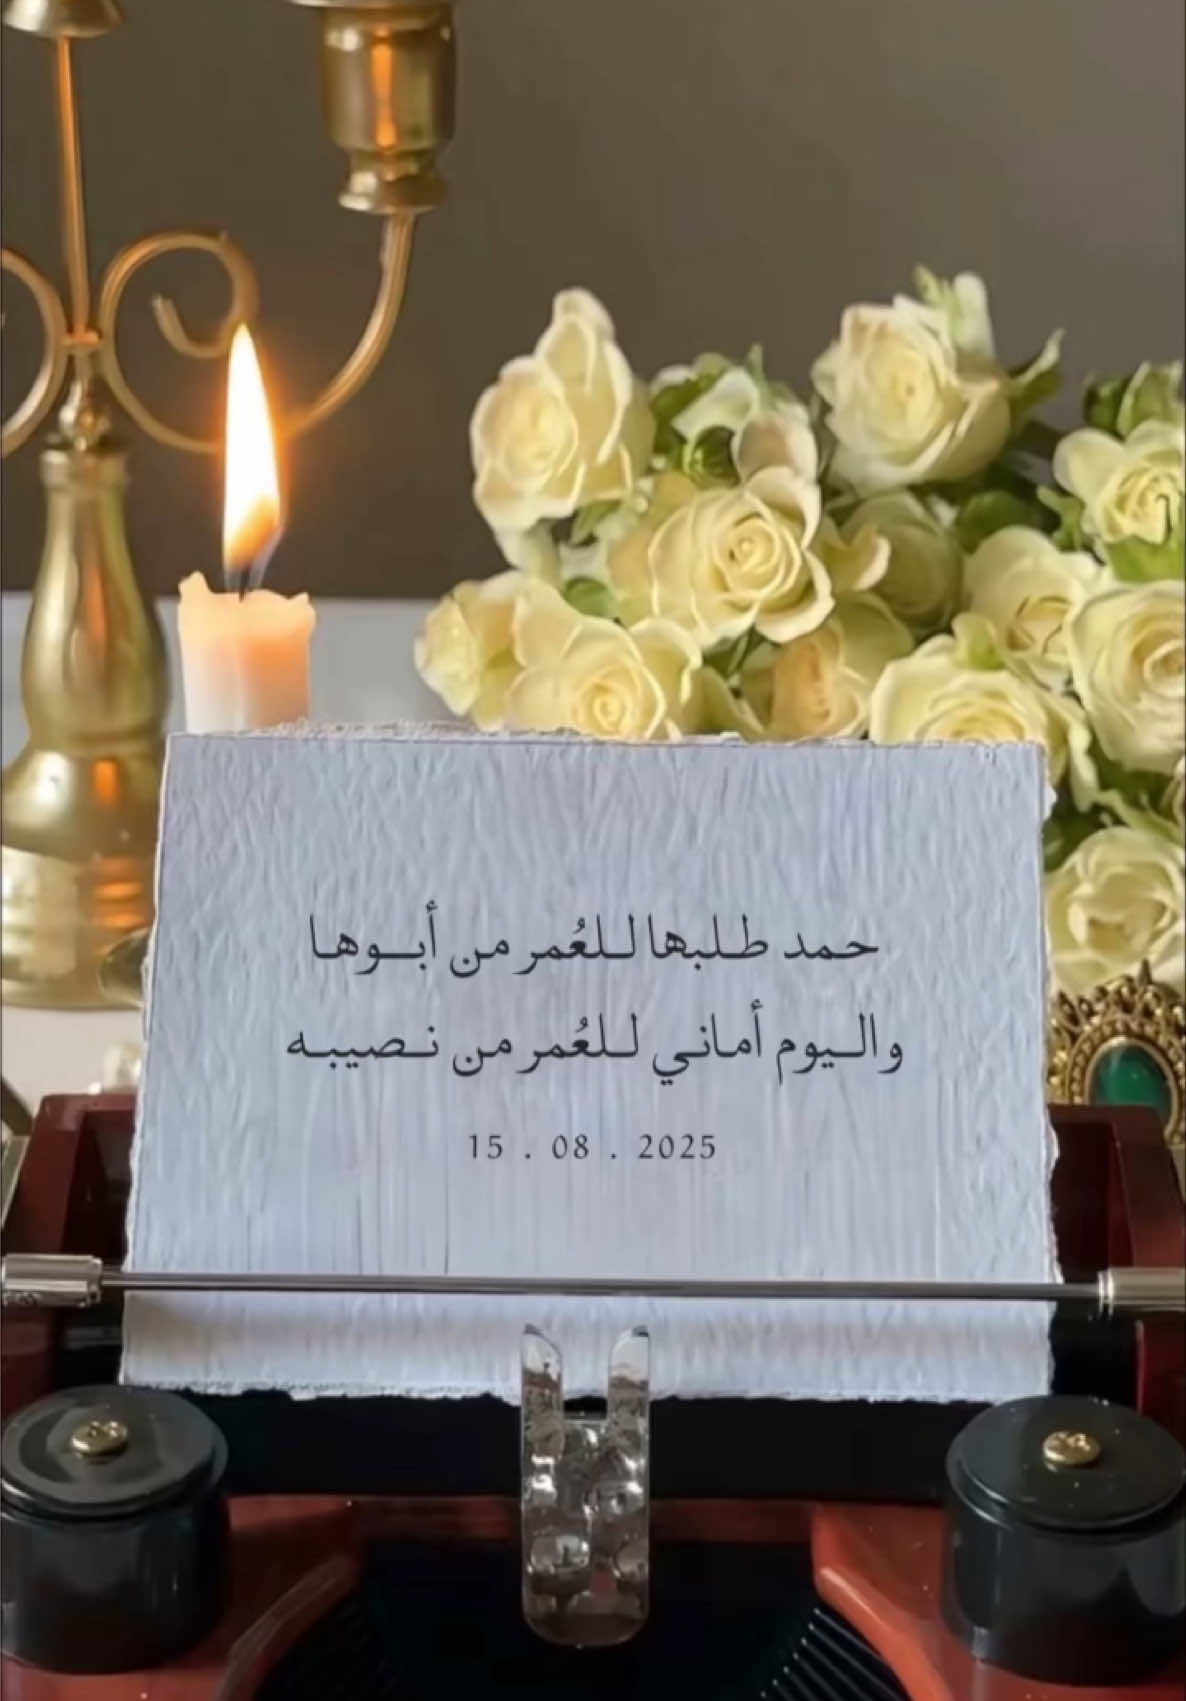 حمد طلبها للعُمر من أبوها
واليوم أماني للعُمر من نصيبه
15 . 08 . 2025